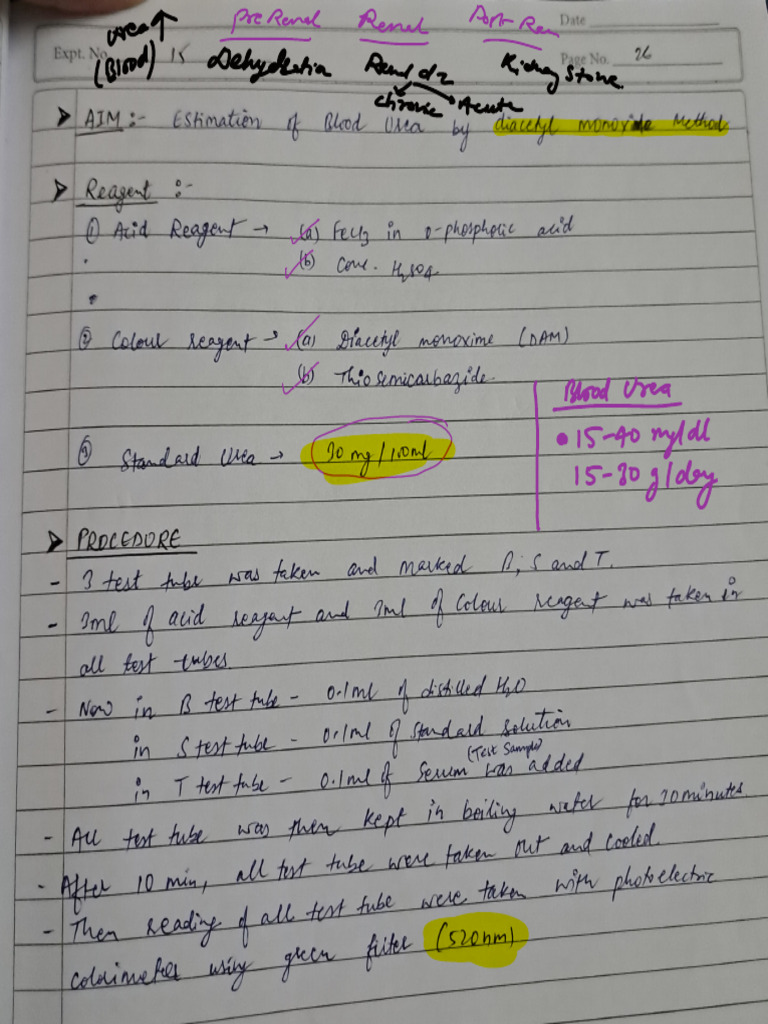 Urea ↑ Pre Renal Renal Post Ren Date
Expt. No. 15 (Blood) Dehydration Renal dz Kidney Stone Page No. 26
Chronic Acute
➤ AIM :- Estimation of Blood Urea by diacetyl monoxide Method
➤ Reagent :-
① Acid Reagent → (a) FeCl3 in o-phospholic acid
(b) Conc. H2SO4
② Colour reagent → (a) Diacetyl monoxime (DAM)
(b) Thiosemicarbazide
Blood Urea
• 15-40 mg/dl
15-30 g/day
③ Standard Urea → 30 mg/100ml
➤ PROCEDURE
- 3 test tube was taken and marked B, S and T.
- 3ml of acid reagent and 3ml of Colour reagent was taken in
all test tubes
- Now in B test tube - 0.1ml of distilled H2O
in S test tube - 0.1ml of Standard solution
in T test tube - 0.1ml of Serum (Test Sample) was added
- All test tube was then kept in boiling water for 10 minutes.
- After 10 min, all test tube were taken out and cooled.
- Then reading of all test tube were taken with photoelectric
colorimeter using green filter (520nm)